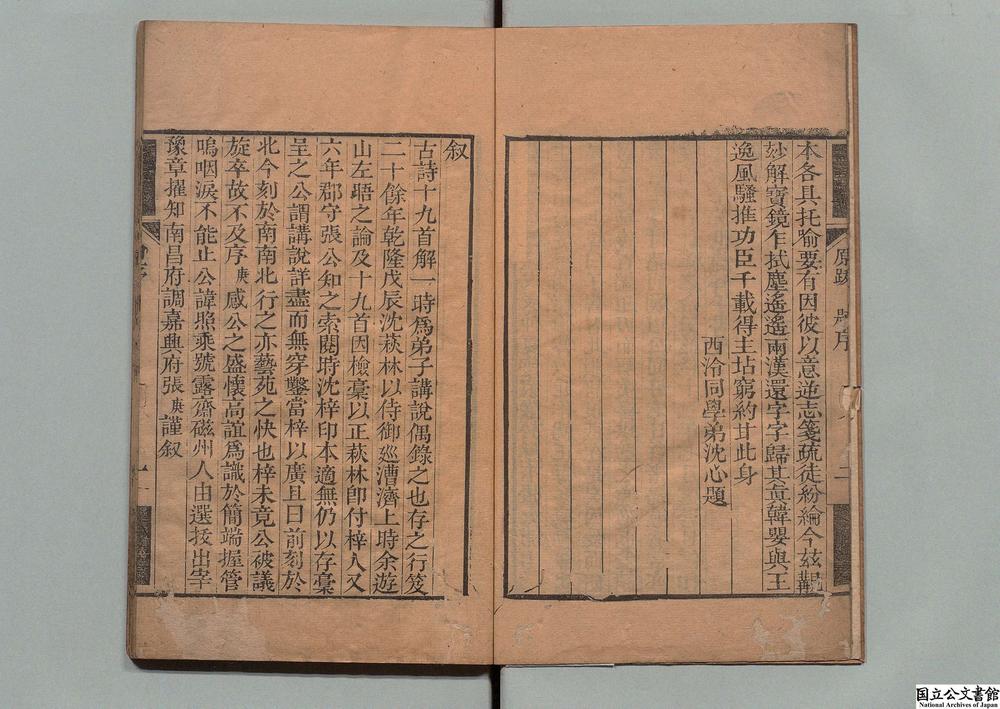 本各具托喻要有因彼以意逆志箋疏徒紛綸今茲覩
妙解寶鏡乍拭塵遙遙兩漢還字字歸其眞韓嬰與王
逸風騷推功臣千載得主坫窮約甘此身
西泠同學弟沈心題
叙
古詩十九首解一時爲弟子講說偶錄之也存之行笈
二十餘年乾隆戊辰沈萩林以侍御廵漕濟上時余遊
山左晤之論及十九首因檢稾以正萩林卽付梓人又
六年郡守張公知之索閱時沈梓印本適無仍以存稾
呈之公謂講說詳盡而無穿鑿當梓以廣且曰前刻於
北今刻於南南北行之亦藝苑之快也梓未竟公被議
旋卒故不及序庚感公之盛懷高誼爲識於簡端握管
嗚咽淚不能止公諱照乘號露齋磁州人由選拔出宰
豫章擢知南昌府調嘉興府張庚謹叙
国立公文書館
National Archives of Japan